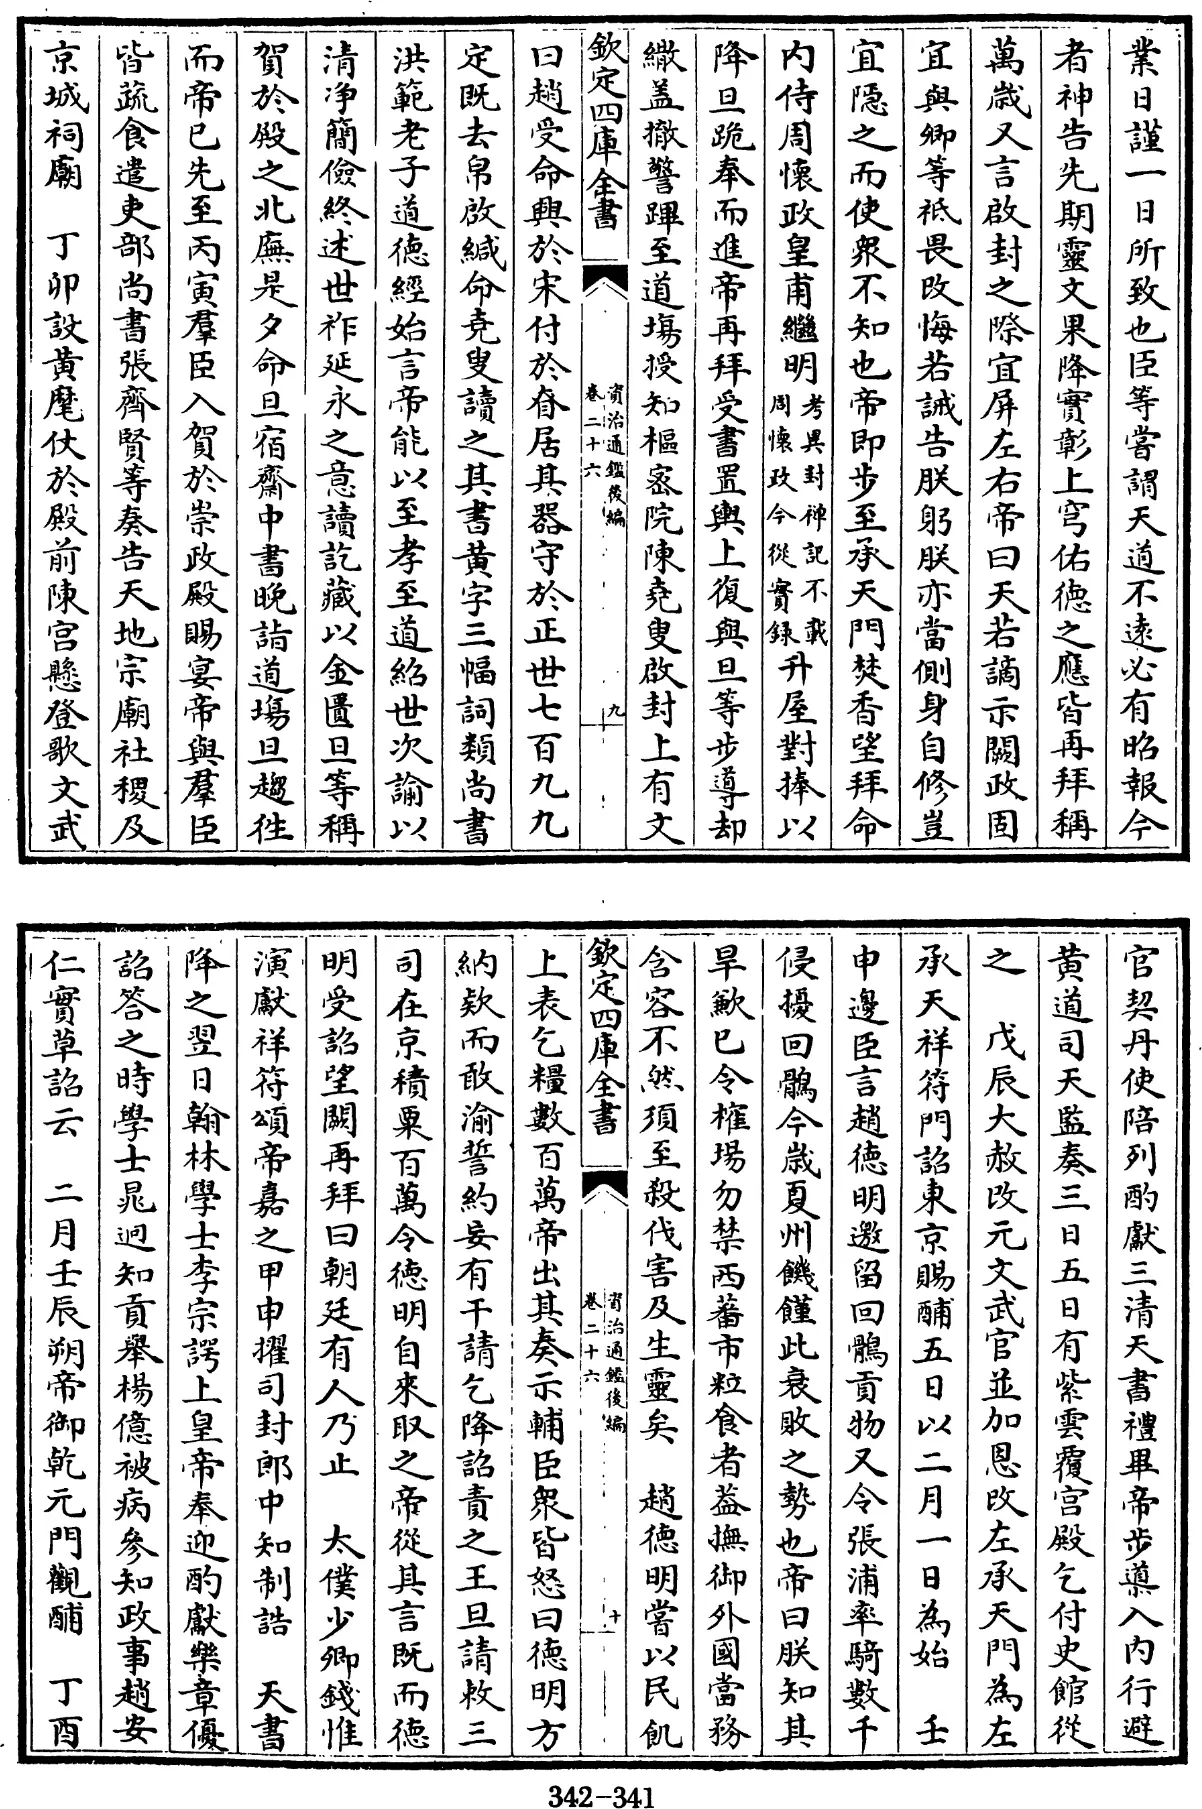 業日謹一日所致也臣等嘗謂天道不遠必有昭報今
者神告先期靈文果降實彰上穹佑徳之應皆再拜稱
萬歲又言啟封之際宜屏左右帝曰天若謫示闕政固
宜與卿等祗畏改悔若誡告朕躬朕亦當側身自修豈
宜隱之而使衆不知也帝即步至承天門焚香望拜命
内侍周懐政皇甫繼明考異封禅記不載周懐政今從實録升屋對捧以
降旦跪奉而進帝再拜受書置輿上復與旦等步導却
繖盖撤警蹕至道塲授知樞宻院陳堯叟啟封上有文
欽定四庫全書
資治通鑑後編
卷二十六
九
曰趙受命興於宋付於眘居其器守於正世七百九九
定既去帛啟緘命堯叟讀之其書黄字三幅詞類尚書
洪範老子道徳經始言帝能以至孝至道紹世次諭以
清净簡儉終述世祚延永之意讀訖藏以金匱旦等稱
賀於殿之北廡是夕命旦宿齋中書晚詣道塲旦趨徃
而帝已先至丙寅羣臣入賀於崇政殿賜宴帝與羣臣
皆蔬食遣吏部尚書張齊賢等奏告天地宗廟社稷及
京城祠廟　丁卯設黄麾仗於殿前陳宫懸登歌文武
官契丹使陪列酌獻三清天書禮畢帝步導入内行避
黄道司天監奏三日五日有紫雲覆宫殿乞付史館從
之　戊辰大赦改元文武官並加恩改左承天門為左
承天祥符門詔東京賜酺五日以二月一日為始　壬
申邊臣言趙徳明邀留回鶻貢物又令張浦率騎數千
侵擾回鶻今歲夏州饑饉此衰敗之勢也帝曰朕知其
旱歉已令榷場勿禁西蕃市粒食者葢撫御外國當務
含容不然須至殺伐害及生靈矣　趙徳明嘗以民飢
欽定四庫全書
資治通鑑後編
卷二十六
十
上表乞糧數百萬帝出其奏示輔臣衆皆怒曰徳明方
納欵而敢渝誓約妄有干請乞降詔責之王旦請敕三
司在京積粟百萬令徳明自來取之帝從其言既而徳
明受詔望闕再拜曰朝廷有人乃止　太僕少卿錢惟
演獻祥符頌帝嘉之甲申擢司封郎中知制誥　天書
降之翌日翰林學士李宗諤上皇帝奉迎酌獻樂章優
詔答之時學士晁迥知貢舉楊億被病參知政事趙安
仁實草詔云　二月壬辰朔帝御乾元門觀酺　丁酉
342-341